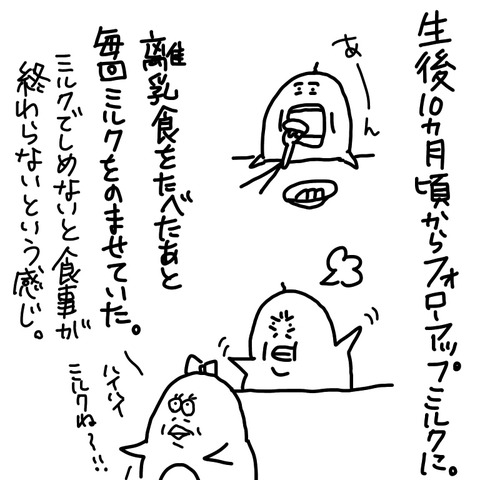 生後10ヵ月頃からフォローアップミルクに。
あーん
離乳食をたべたあと
毎回ミルクをのませていた。
ミルクでしめないと食事が
終わらないという、感じ。
ハイハイ
ミルクね〜!!